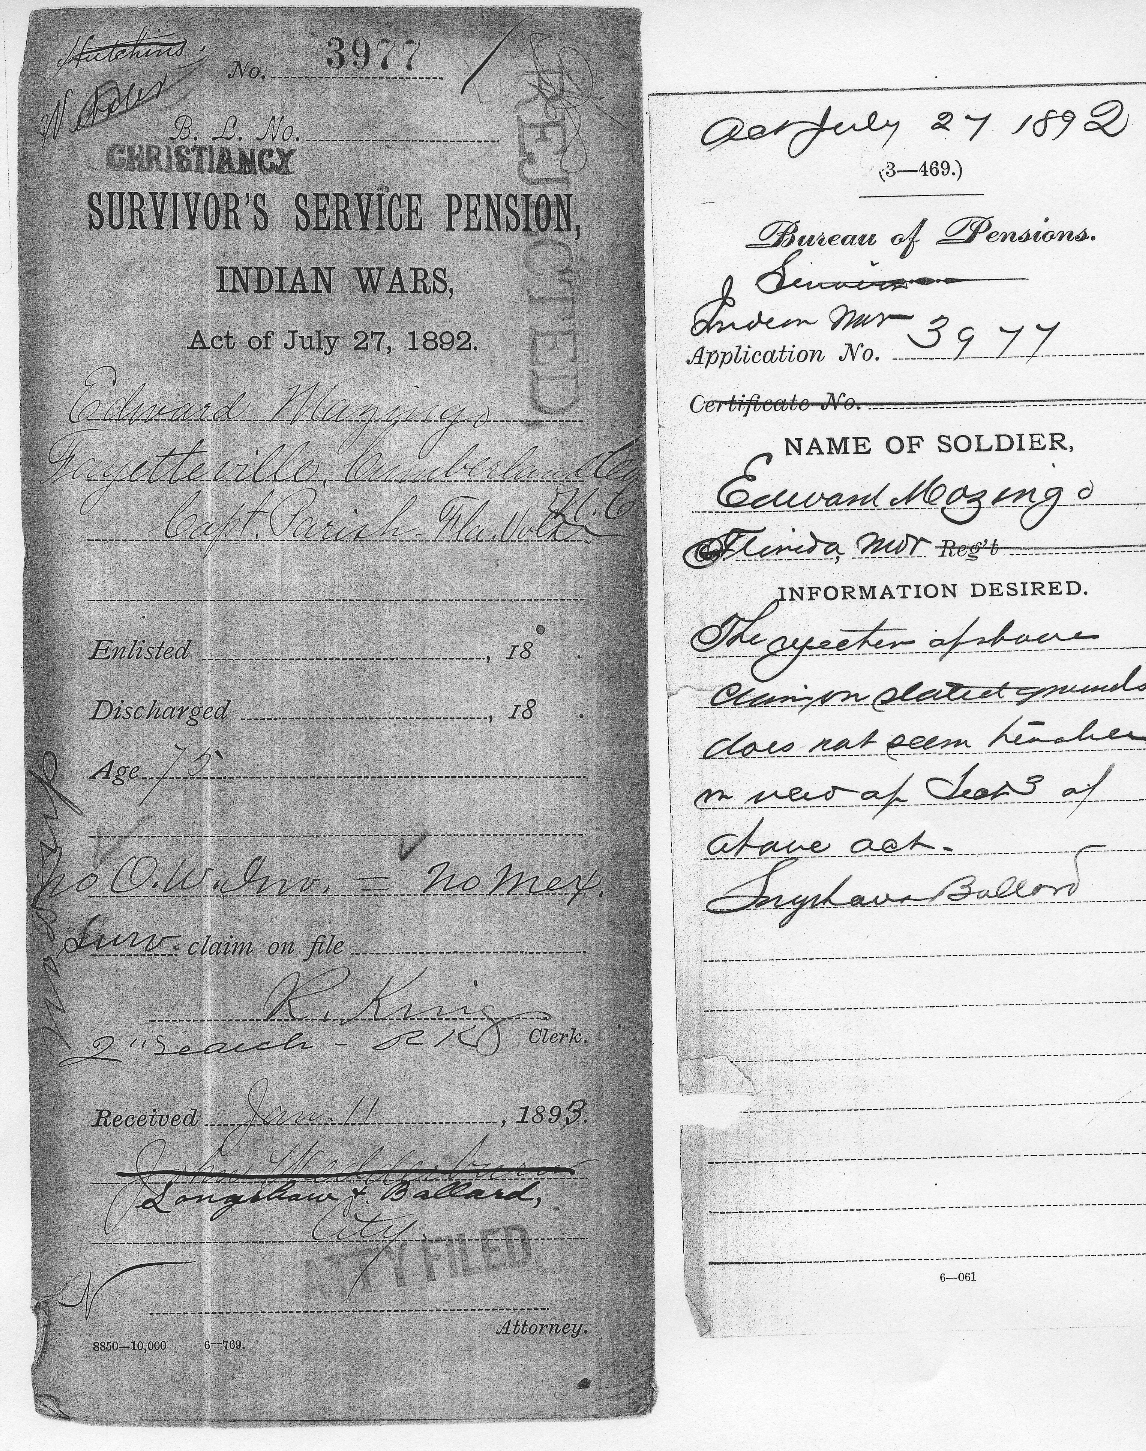 Hutchins.
No. 3977
B. L. No.
CHRISTIANCY
REJECTED
SURVIVOR'S SERVICE PENSION,
INDIAN WARS,
Act of July 27, 1892.
Edward Mazingo
Fayetteville, Cumberland Co
N.C.
Capt. Parish Fla. Vols
Enlisted , 18 .
Discharged , 18 .
Age 75
no O.W. Inv. = no Mex.
Surv. claim on file
R. King
Clerk.
2" Search - RK
Received Jan. 11 , 1893.
Longshaw & Ballard,
City
ATTY FILED
Attorney.
8850—10,000 6—769.
Act July 27 1892
(3—469.)
Bureau of Pensions.
Indian War
Application No. 3977
Certificate No.
NAME OF SOLDIER,
Edward Mozingo
Florida, Mor Reg't
INFORMATION DESIRED.
The rejection of above
claim on stated grounds
does not seem
in view of Sect 3 of
above act.
Longshaw Ballard
6—061